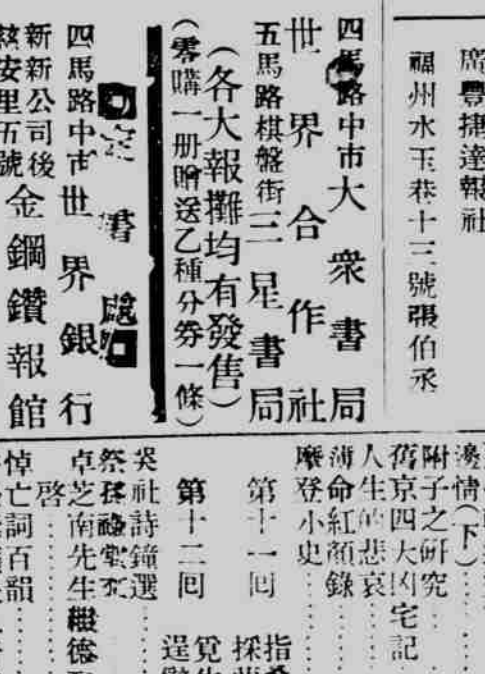 席豐捷達報社
福州水玉巷十三號張伯丞
四馬路中市大衆書局
世界合作社
五馬路棋盤街三星書局
(各大報攤均有發售)
(零購一册贈送乙種分券一條)
定書處
四馬路中市世界銀行
新新公司後
安里五號
金鋼鑽報館
邊情(下)……
附子之研究……
舊京四大凶宅記……
人生的悲哀……
薄命紅顏錄……
摩登小史……
第十一回
第十二回
吳社詩鐘選……
卓芝南先生
啓……
悼亡詞百韻……